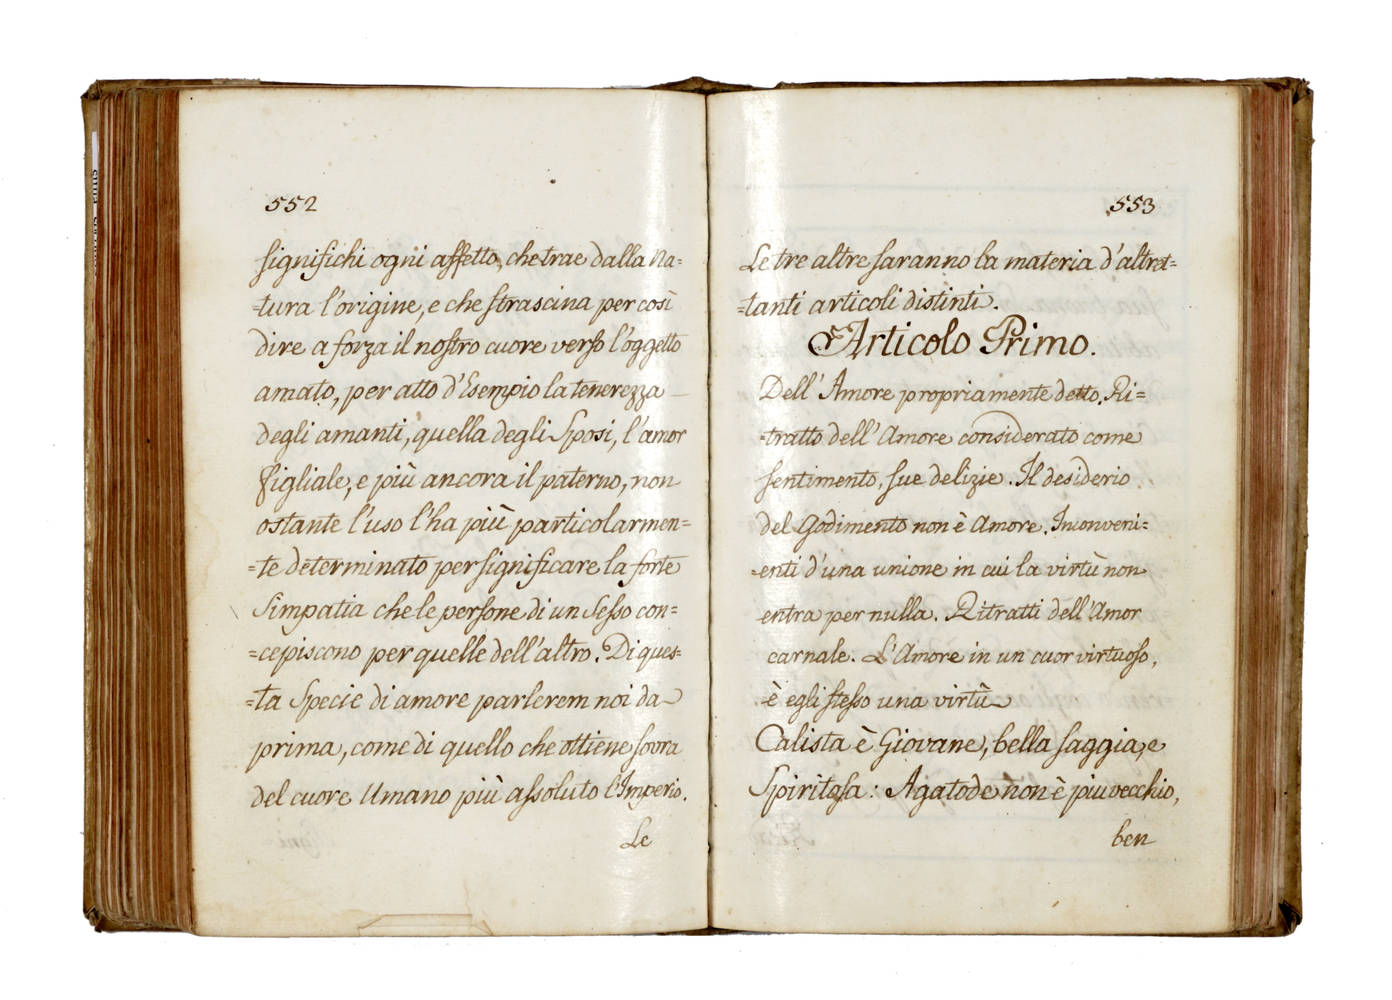 552
significhi ogni affetto, che trae dalla Na=
=tura l'origine, e che strascina per così
dire a forza il nostro cuore verso l'oggetto
amato, per atto d'Esempio la tenerezza
degli amanti, quella degli Sposi, l'amor
figliale, e più ancora il paterno, non
ostante l'uso l'ha più particolarmen=
=te determinato per significare la forte
Simpatia che le persone di un Sesso con=
=cepiscono per quelle dell'altro. Di ques=
=ta Specie di amore parlerem noi da
prima, come di quello che ottiene sovra
del cuore Umano più assoluto l'Imperio.
Le
553
Le tre altre saranno la materia d'altret=
=tanti articoli distinti.
Articolo Primo.
Dell'Amore propriamente detto. Ri=
=tratto dell'Amore considerato come
sentimento, sue delizie. Il desiderio
del Godimento non è Amore. Inconveni=
=enti d'una unione in cui la virtù non
entra per nulla. Ritratti dell'Amor
carnale. L'Amore in un cuor virtuoso,
è egli stesso una virtù
Calista è Giovane, bella saggia, e
Spiritosa: Agatode non è piu vecchio,
ben